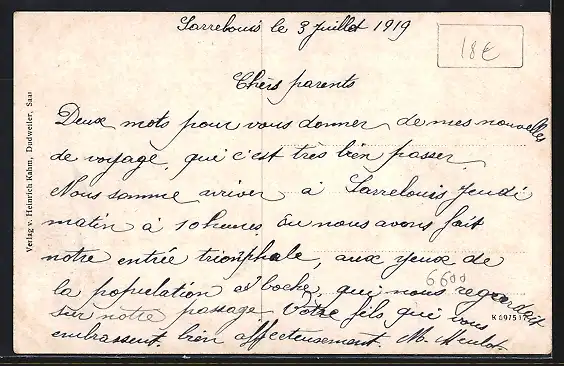 Sarrelouis le 3 juillet 1919
18€
Chers parents
Deux mots pour vous donner de mes nouvelles
de voyage, qui c'est très bien passer
Nous somme arriver à Sarrelouis Jeudi
matin à 10 heures, ou nous avons fait
notre entrée trionphale, aux yeux de
la population boche, qui nous regardait
sur notre passage. Votre fils qui vous
embrassent bien affecteusement. M.
6600
K 6975 17
Verlag v. Heinrich Kahm, Dudweiler, Saar